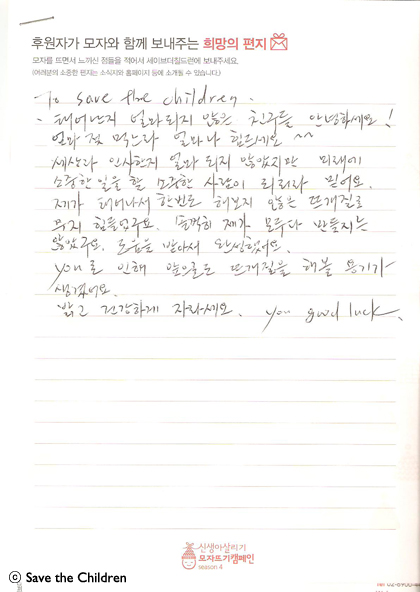 후원자가 모자와 함께 보내주는 희망의 편지
모자를 뜨면서 느끼신 점들을 적어서 세이브더칠드런에 보내주세요.
(여러분의 소중한 편지는 소식지와 홈페이지 등에 소개될 수 있습니다.)
To save the children.
태어난지 얼마되지 않은 친구들 안녕하세요!
엄마 젖 먹느라 얼마나 힘드세요 ^^
세상과 인사한지 얼마 되지 않았지만 미래에
소중한 일을 할 소중한 사람이 되리라 믿어요.
제가 태어나서 한번도 해보지 않은 뜨개질로
무지 힘들었구요. 솔직히 제가 모두다 만들지는
않았구요. 도움을 받아서 완성했어요.
you로 인해 앞으로도 뜨개질을 해볼 용기가
생겼어요.
밝고 건강하게 자라세요. you good luck.
신생아살리기
모자뜨기캠페인
season 4
ⓒ Save the Children